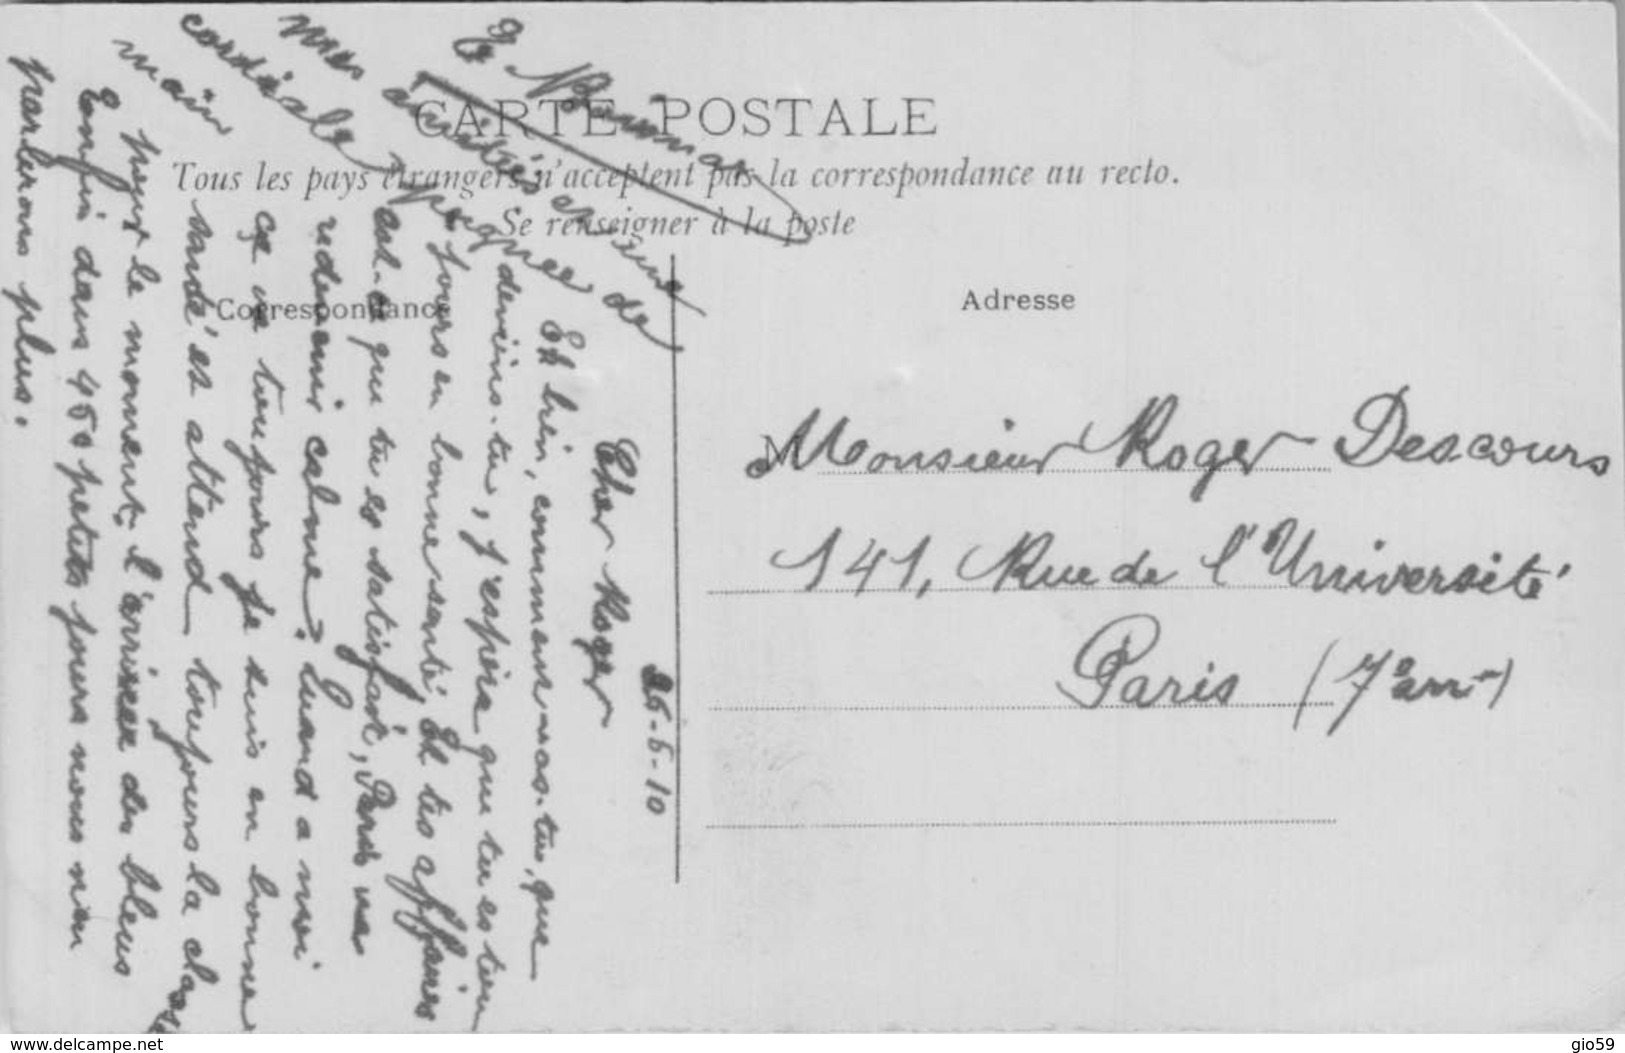 CARTE POSTALE
Tous les pays étrangers n'acceptent pas la correspondance au recto.
Se renseigner à la poste
Correspondance
Adresse
M
Monsieur Roger Descours
141, Rue de l'Université
Paris (7e arr)
26-6-10
Cher Roger
Eh bien, comment vas-tu, que
deviens-tu, j'espère que tu es tou
jours en bonne santé, Et tes affaires
est-ce que tu es satisfait,
redeveni calme. Quand a moi
ça va toujours je suis en bonne
santé et attend toujours la classe
pour le moment, l'arrivée des bleus
Enfin dans 450 petits jours nous n'en
parlerons plus.
mes amitiés et une
cordiale poignée de
main